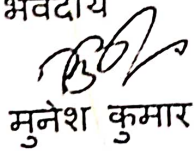 भवदीय
मुनेश कुमार